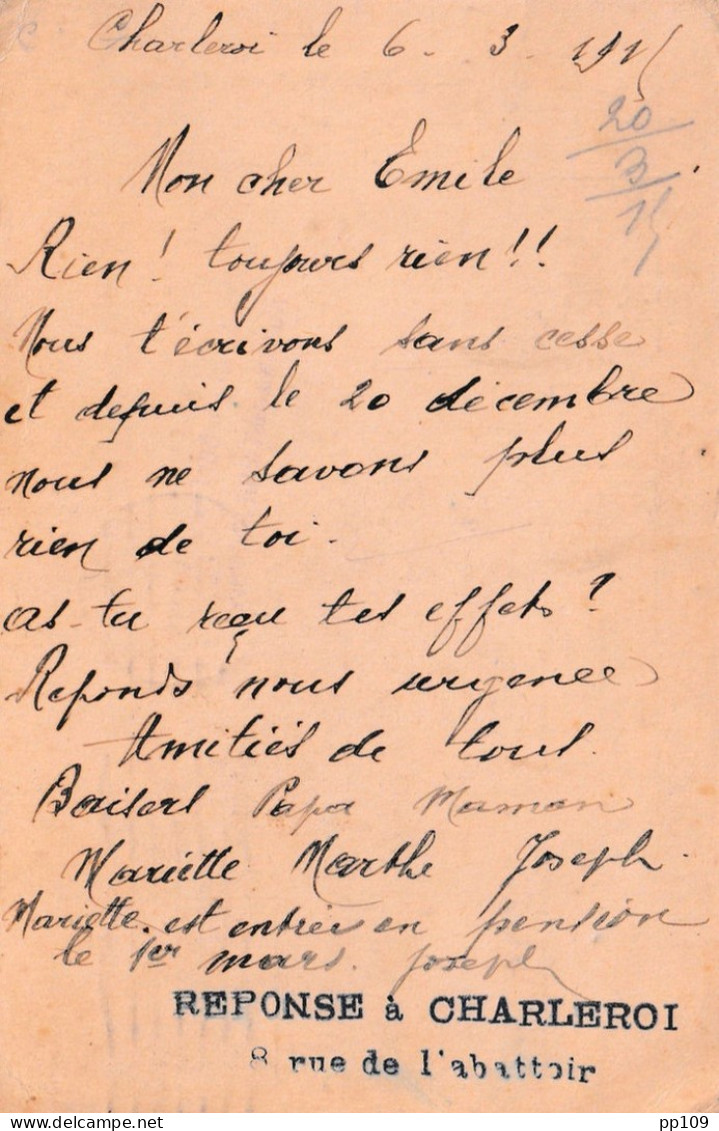 Charleroi le 6 - 3 - 1915
20
3
15
Mon cher Emile
Rien ! toujours rien !!
Nous t'écrivons sans cesse
et depuis le 20 décembre
nous ne savons plus
rien de toi.
as-tu reçu tes effets ?
Reponds nous urgence
Amitiés de tous.
Baisers Papa Maman
Mariette Marthe Joseph.
Mariette est entrée en pension
le 1er mars. Joseph
REPONSE à CHARLEROI
8 rue de l'abattoir
pp109